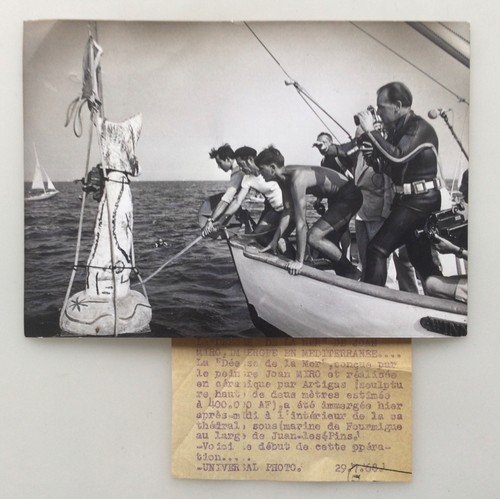 MIRO, IMMERGEE EN MEDITERRANEE....
La "Déesse de la Mer", conçue par
le peintre Joan MIRO et réalisée
en céramique par Artigas (sculptu
re haute de deux mètres estimée
à 400.000 AF), a été immergée hier
après-midi à l'intérieur de la ca
thédrale sous(marine de Fourmigue
au large de Juan-les$Pins.
-Voici le début de cette opéra-
tion....
-UNIVERSAL PHOTO.